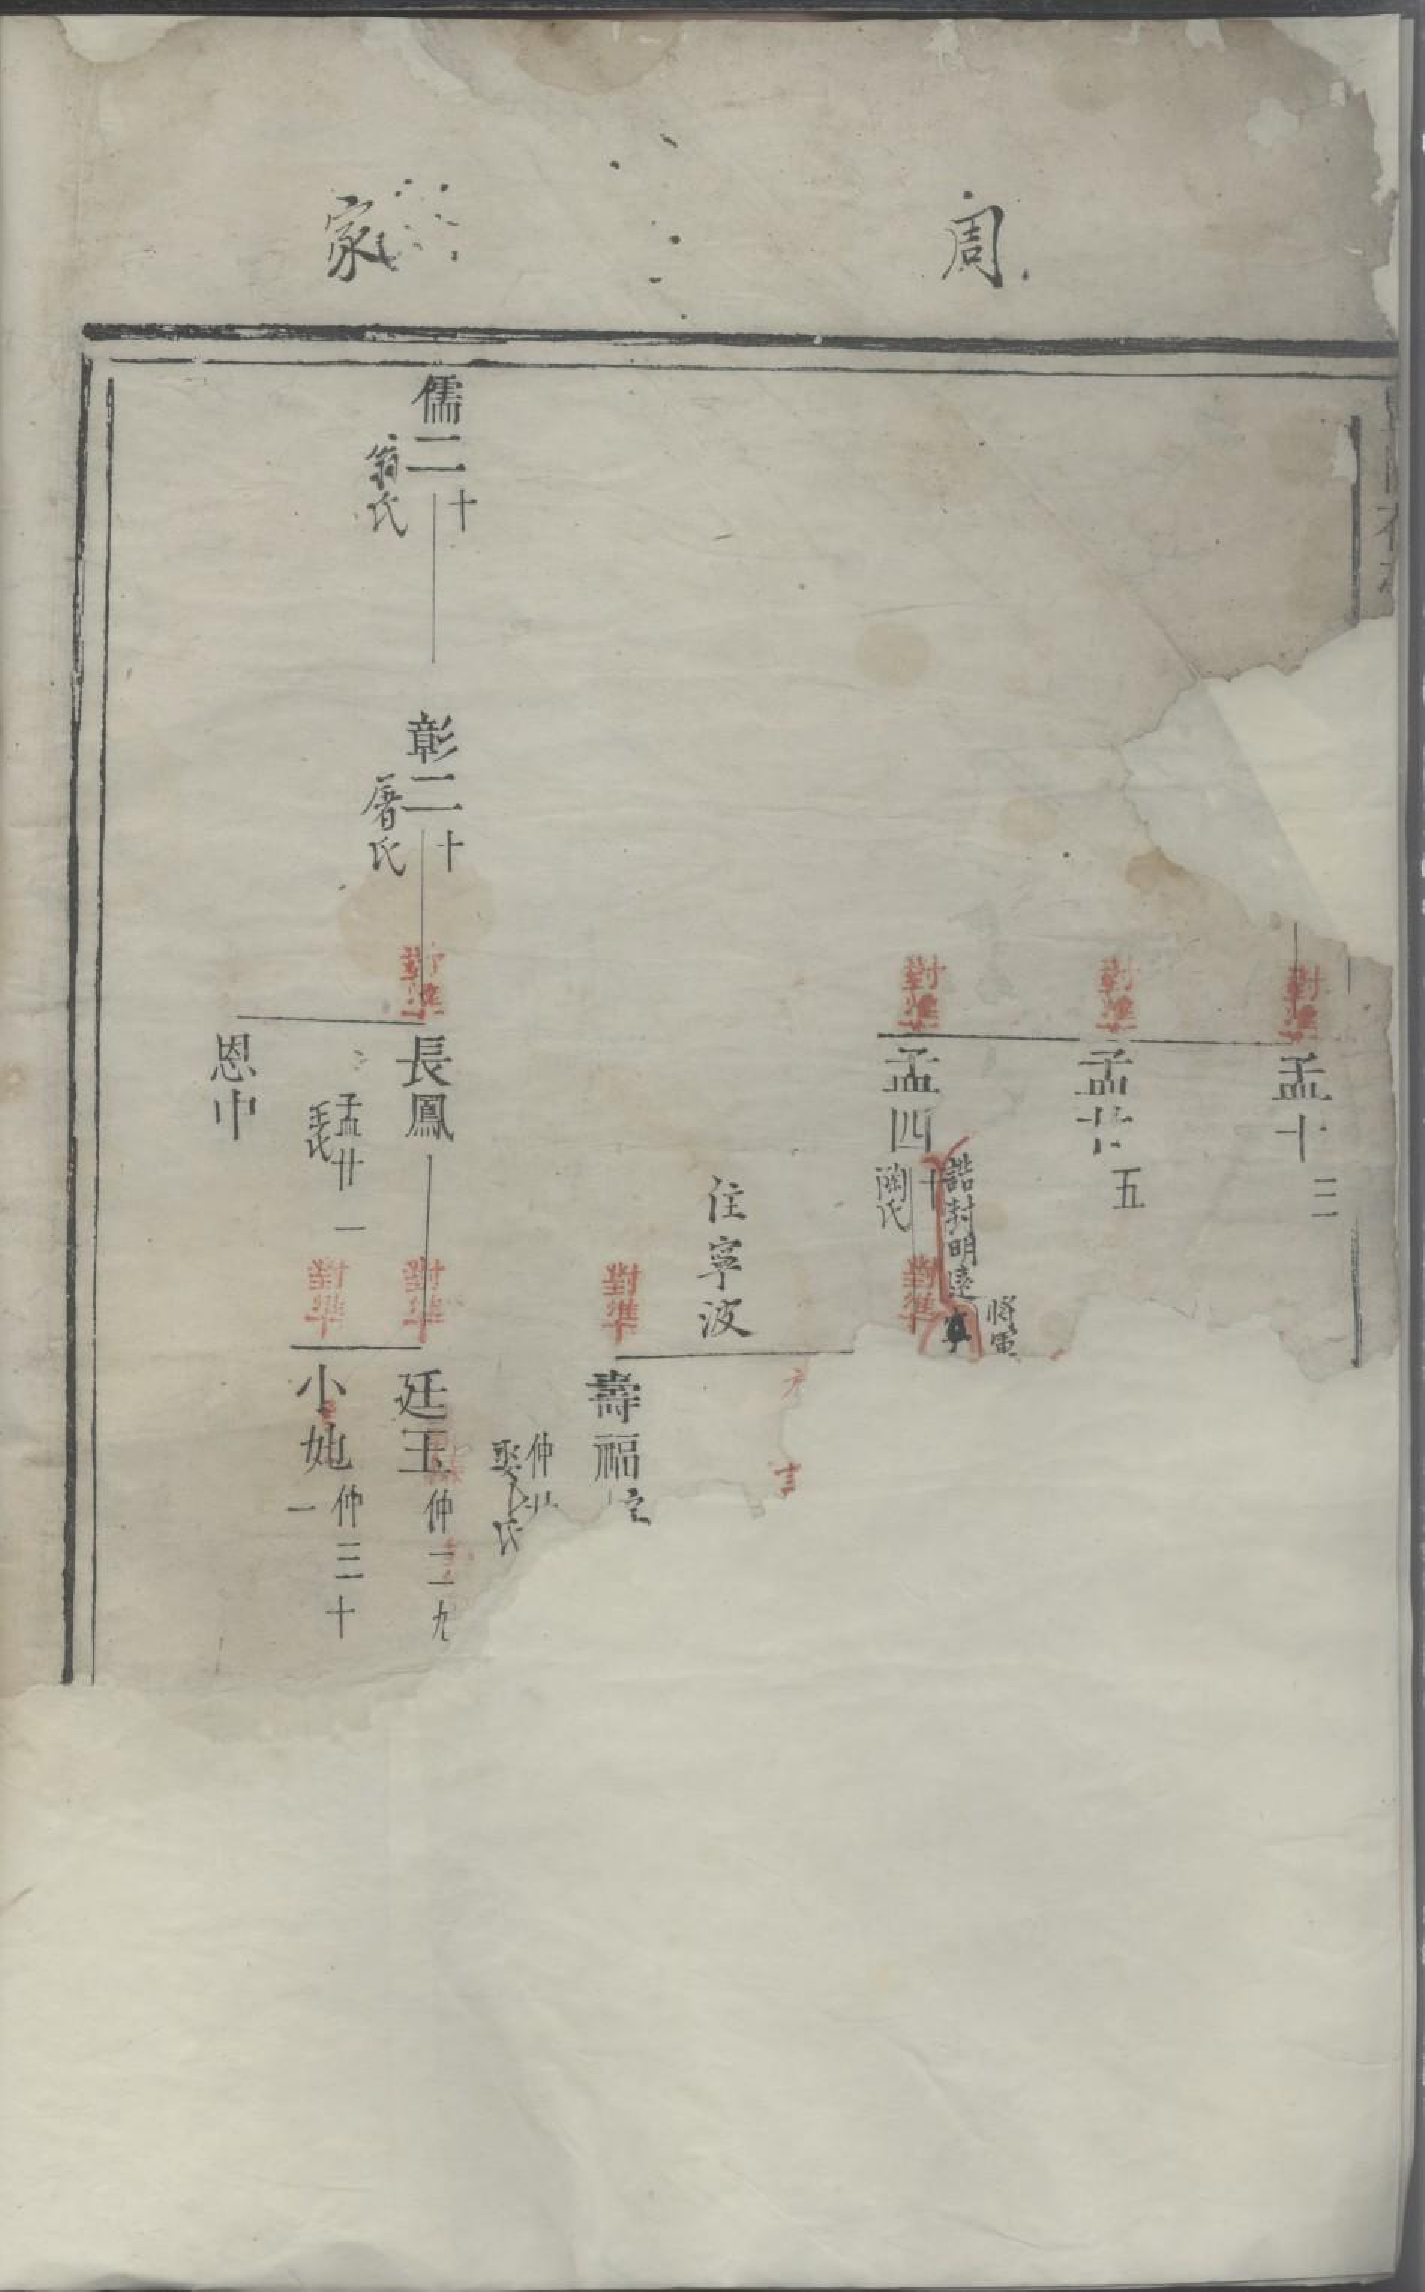 周家
對準
孟十三
對準
孟廿五
對準
孟四十
陶氏
誥封明遠
將軍
對準
住寧波
對準
壽福
仲
娶
氏
儒二十
翁氏
彰二十
屠氏
對準
長鳳
孟廿一
毛氏
恩中
對準
廷玉
仲二九
對準
小她
仲三十一